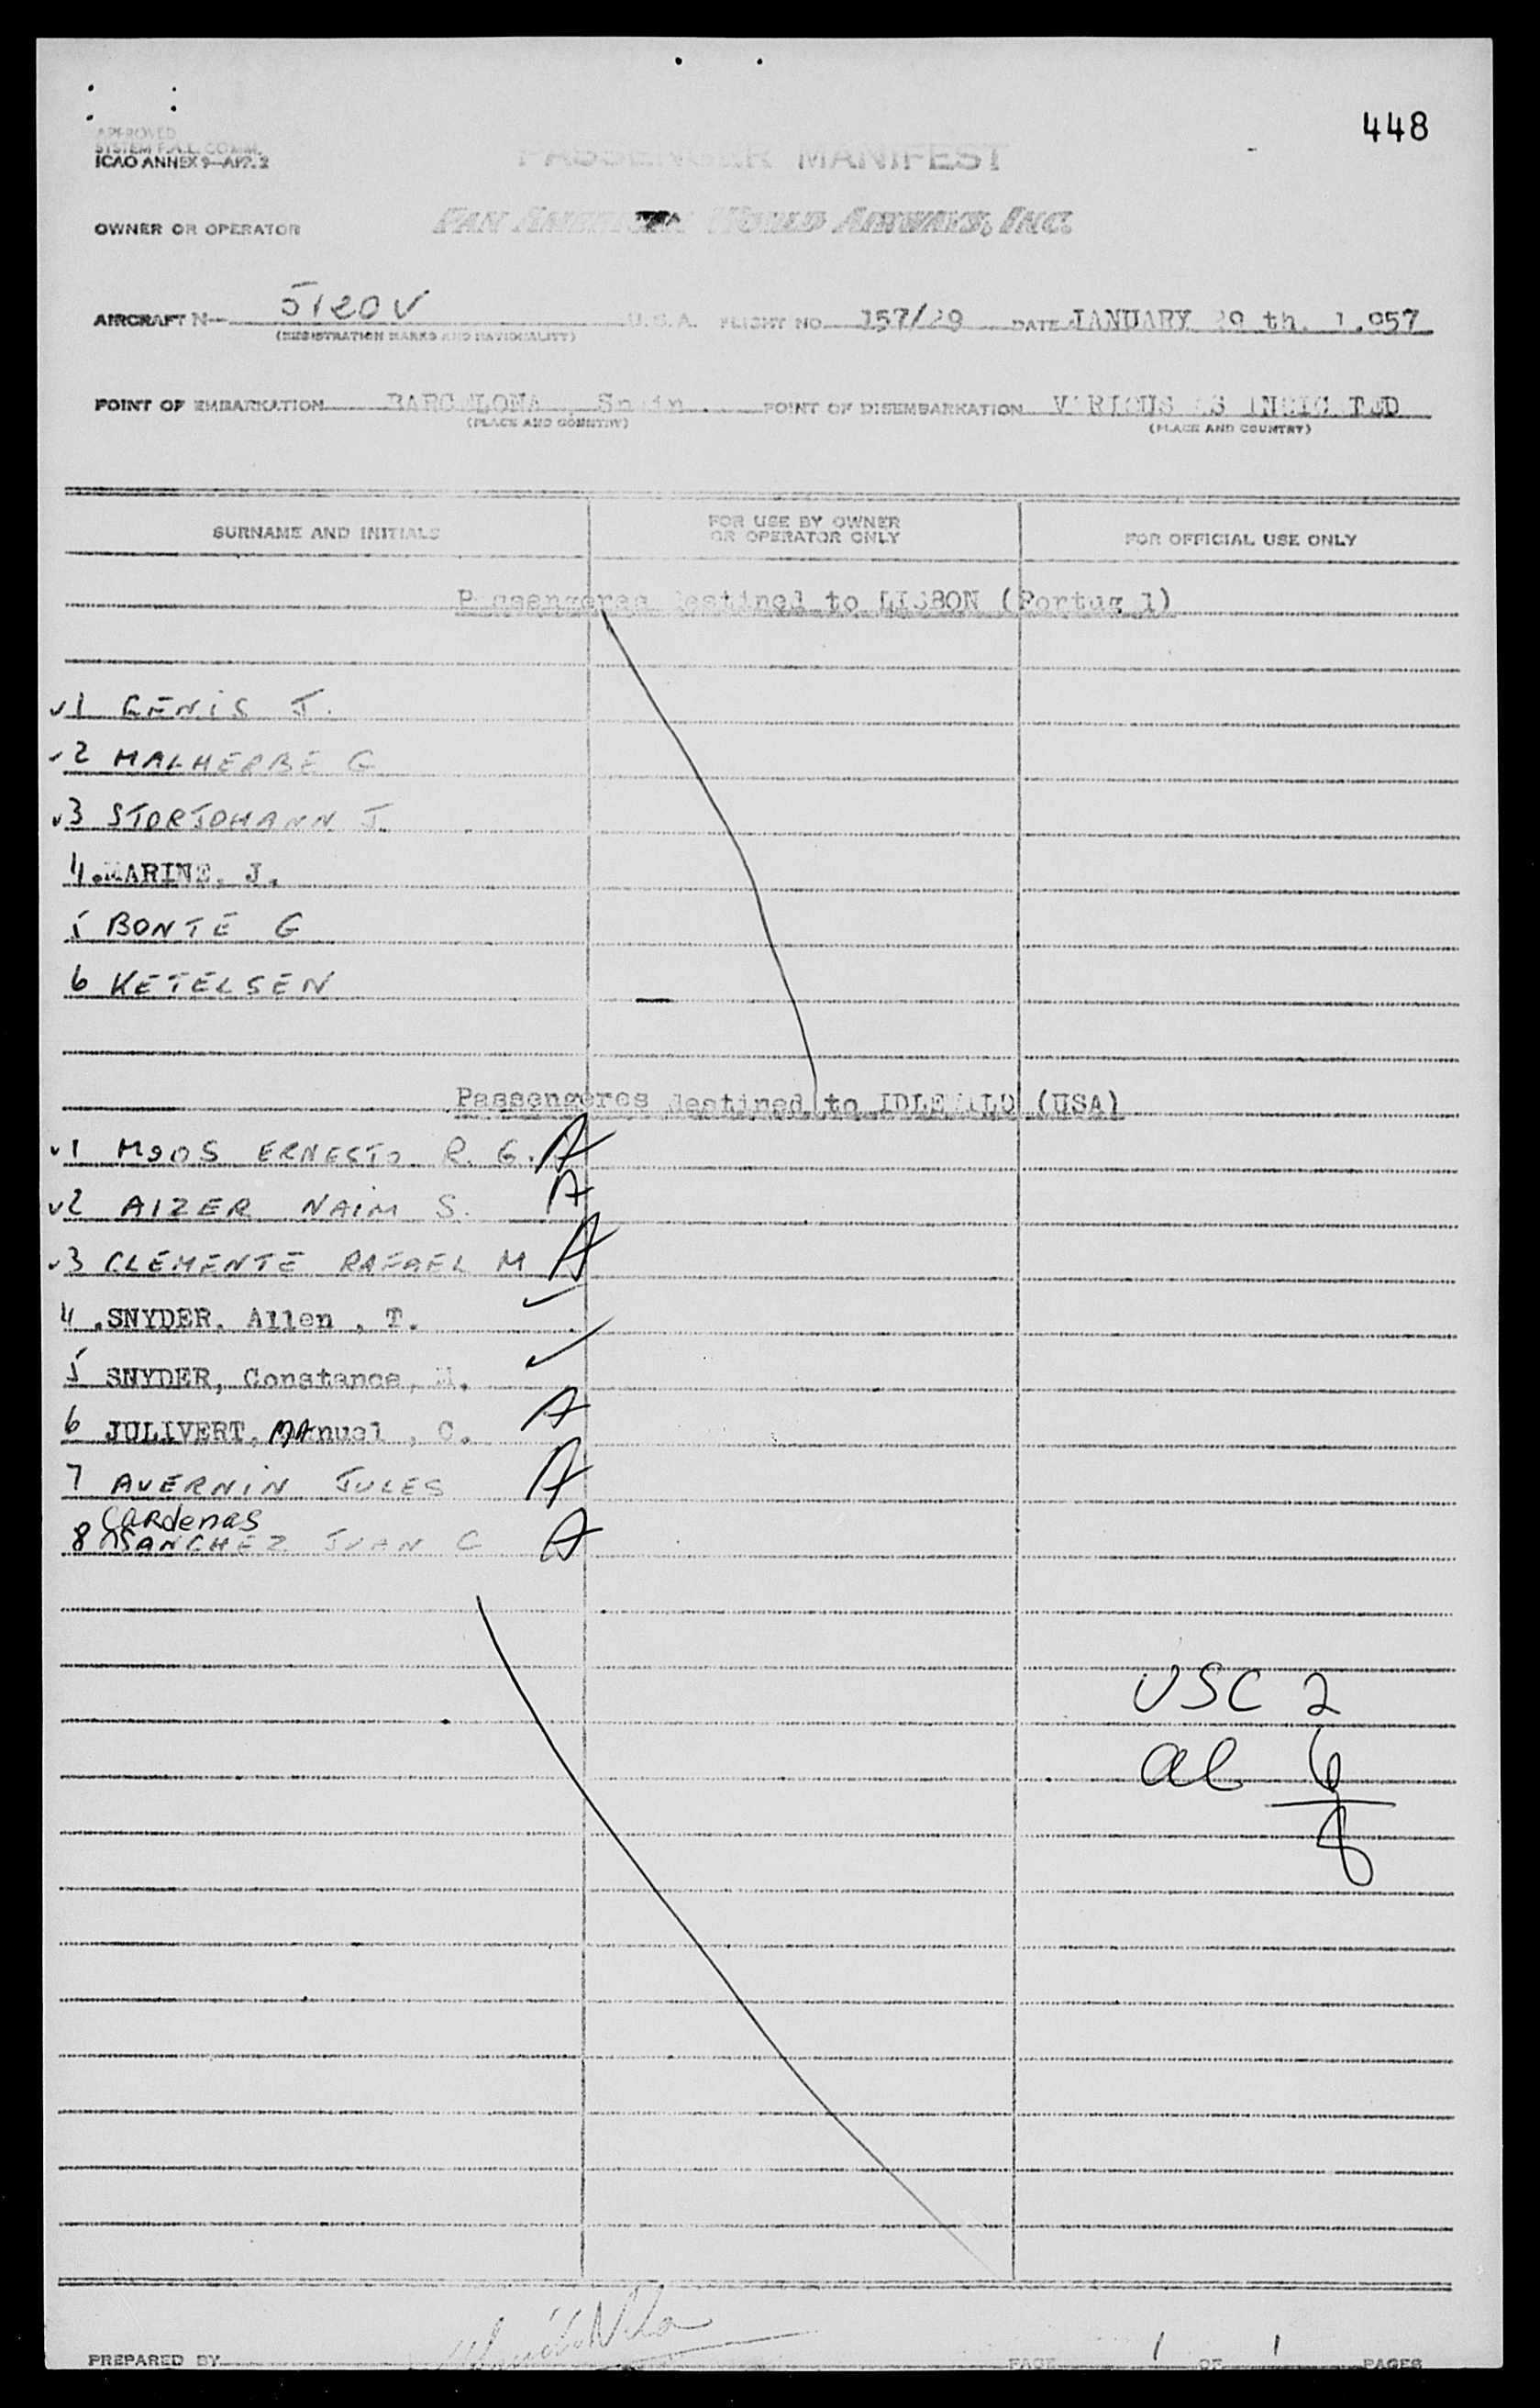 448
APPROVED
SYSTEM F.A.L. COMM.
ICAO ANNEX 9—APP. 2
PASSENGER MANIFEST
OWNER OR OPERATOR PAN AMERICAN WORLD AIRWAYS, INC.
AIRCRAFT N— 5120V U.S.A. FLIGHT NO. 157/29 DATE JANUARY 29 th. 1.957
(REGISTRATION MARKS AND NATIONALITY)
POINT OF EMBARKATION BARCELONA, Spain. POINT OF DISEMBARKATION VARIOUS AS INDICATED
(PLACE AND COUNTRY) (PLACE AND COUNTRY)
SURNAME AND INITIALS FOR USE BY OWNER OR OPERATOR ONLY FOR OFFICIAL USE ONLY
Passengeres destined to LISBON (Portugal)
√1 GENIS J.
√2 MALHERBE G
√3 STORJOHANN J.
4.MARINE, J.
5 BONTE G
6 KETELSEN
Passengeres destined to IDLEWILD (USA)
√1 MOOS ERNESTO R. G. A
√2 AIZER NAIM S. A
√3 CLEMENTE RAFAEL M A
4 .SNYDER, Allen , T. ✓
5 SNYDER, Constance, M. ✓
6 JULIVERT, MAnuel , C. A
7 AVERNIN JULES A
Cardenas
8 SANCHEZ JUAN C A
USC 2
al 6
8
PREPARED BY PAGE 1 OF 1 PAGES